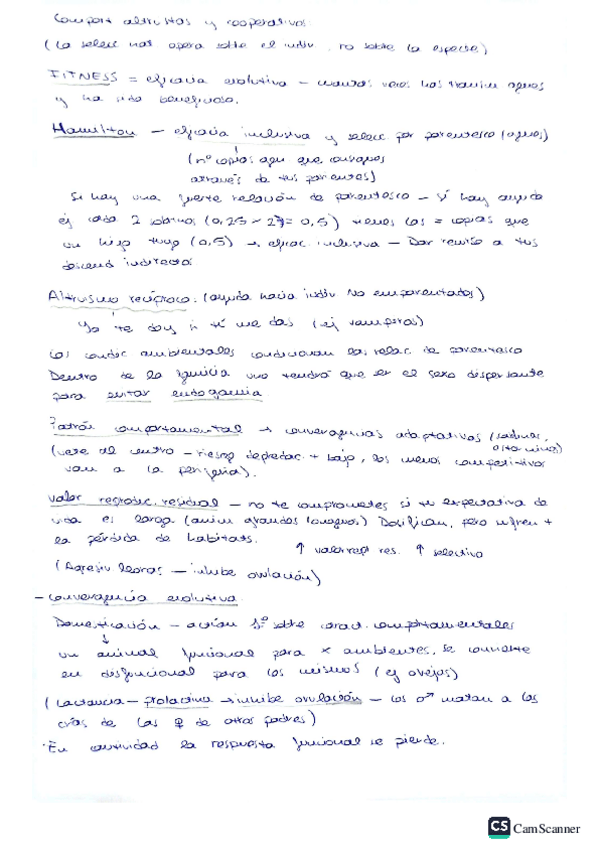 Comport altruistas y cooperativos:
(La selecc nat. opera sobre el indiv. no sobre la especie)
FITNESS = eficacia evolutiva – cuantas veces has transm genes
y ha sido beneficioso.
Hamilton – eficacia inclusiva y selecc por parentesco (genes)
(nº copias gen que consigues
através de tus parientes)
Si hay una fuerte relación de parentesco – sí hay ayuda
ej cada 2 sobrinos (0,25 ~ 27= 0,5) tienes las = copias que
un hijo tuyo (0,5) → eficac. inclusiva – Dar a tus
descend indirectos
Altruismo recíproco: (ayuda hacia indiv No emparentados)
Yo te doy si tú me das (ej vampiros)
Las condic ambientales condicionan las relac de parentesco
Dentro de la uno tendrá que ser el sexo dispersante
para evitar endogamia.
Patrón comportamental → convergencias adaptativas (sardinas,
(vete al centro – riesgo depredac + bajo, los menos competitivos
van a la periferia).
Valor reproduc. residual – no te comprometes si tu expectativa de
vida es larga (anim grandes (longevos) Dosifican, pero sufren +
la pérdida de habitats.
↑ valor rep res. ↑ selectivo
(Agresiv leonas – inhibe ovulación)
– Convergencia evolutiva.
Domesticación – acción sobre caract. comportamentales
↓
un animal funcional para x ambientes, se convierte
en disfuncional para los mismos (ej ovejas)
(Lactancia – prolactina → inhibe ovulación – los ♂ matan a las
crías de las ♀ de otros padres)
· En cautividad la respuesta funcional se pierde.
CS CamScanner